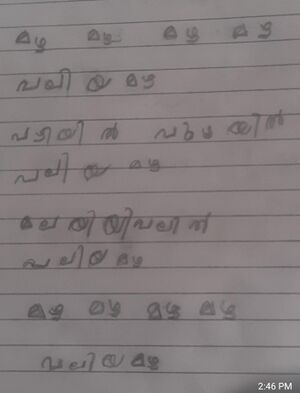 മഴ മഴ മഴ മഴ
വലിയ മഴ
പടിയിൽ പുഴയിൽ
വലിയ മഴ
വലിയ മഴ
മഴ മഴ മഴ മഴ
വലിയ മഴ
2:46 PM